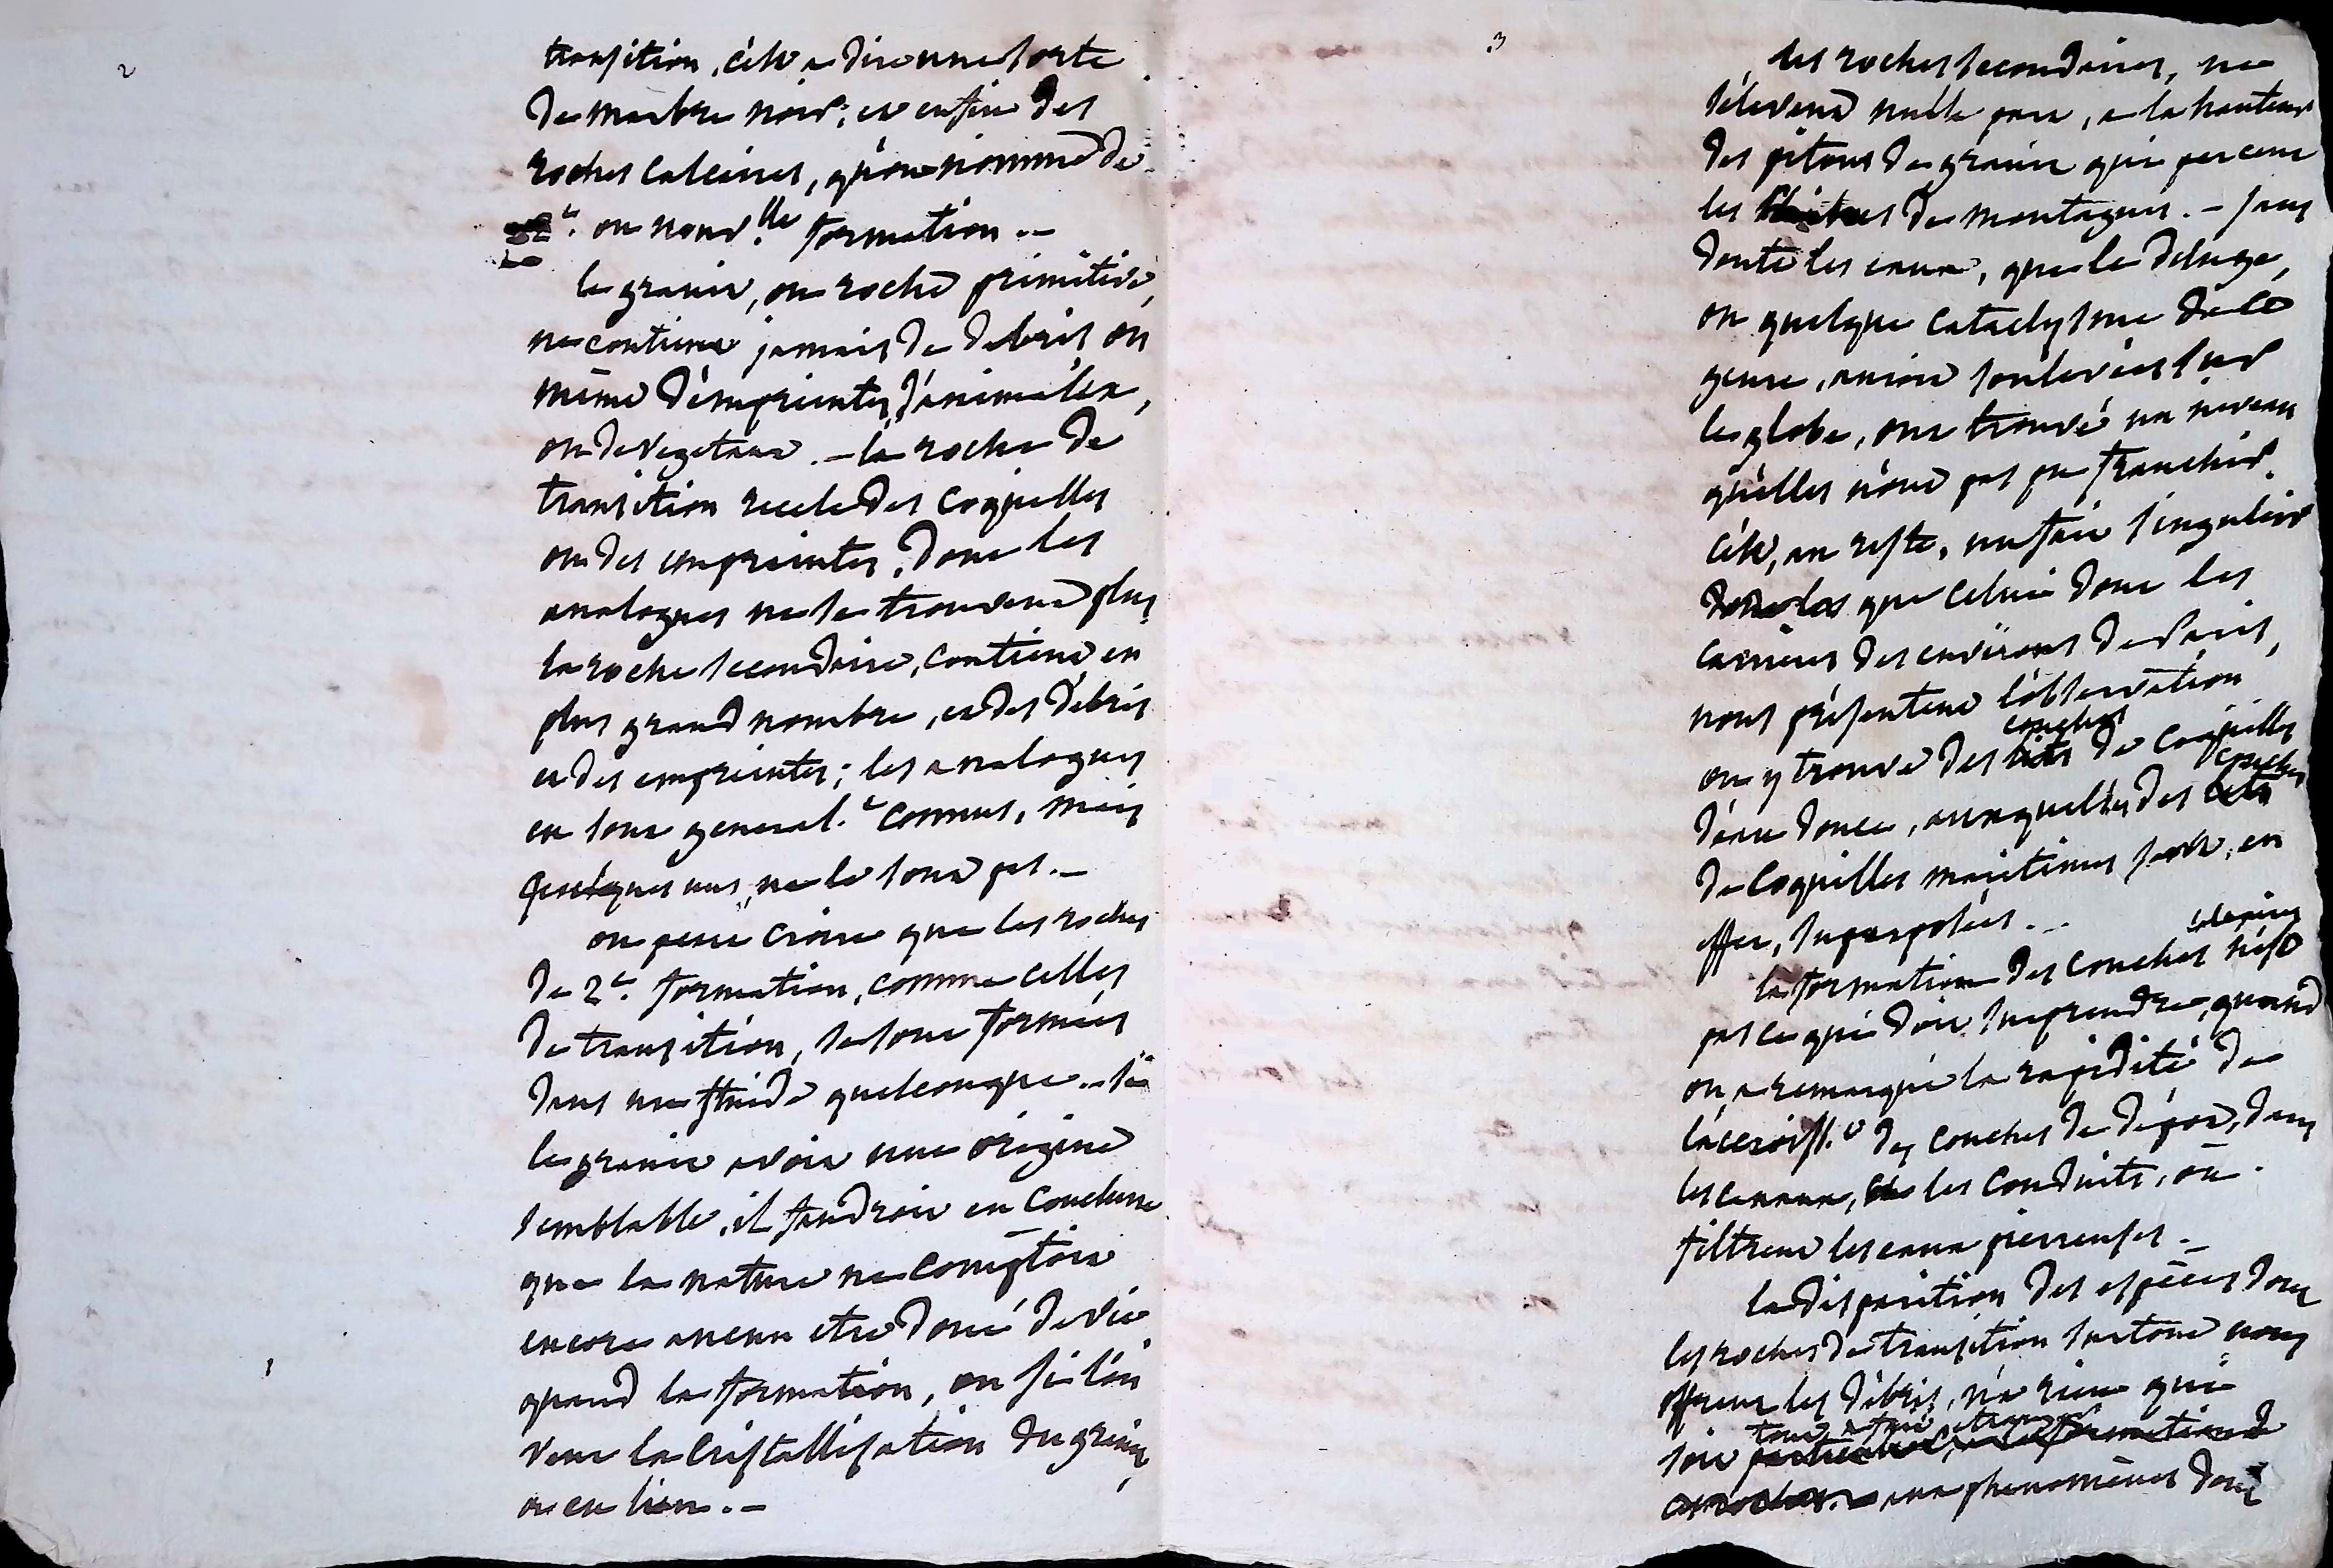 2
transition, c'est a dire une sorte
de marbre noir; et enfin des
roches calcaires, qu'on nomme de
2e. ou nouv.lle formation. –
le granit, ou roche primitive,
ne contient jamais de debris ou
même d'empreintes d'animalex,
ou de vegetaux. – la roche de
transition recele des coquilles
ou des empreintes, dont les
analogues ne se trouvent plus
la roche secondaire, contient en
plus grand nombre, et des debris
et des empreintes; les analogues
en sont general.t connus, mais
quelques uns, ne le sont pas. –
on peut croire que les roches
de 2e. formation, comme celles
de transition, se sont formées
dans un fluide quelconque. – si
le granit avoit une origine
semblable, il faudroit en conclure
que la nature ne comptoit
encore aucun etre doué de vie
quand la formation, ou si l'on
veut la cristallisation du granit,
a eu lieu. –
3
les roches secondaires, ne
s'elevent nulle part, a la hauteur
des pitons de granit qui percent
les de montagnes. – sans
doute les eaux, que le deluge,
ou quelque cataclysme de ce
genre, avoit soulevées sur
le globe, ont trouvé un niveau
qu'elles n'ont pas pu franchir.
c'est, au reste, un fait singulier
que celui dont les
carrieres des environs de Paris,
nous présentent l'observation
couches
on y trouve des lits de coquilles
couches
d'eau douce, auxquelles des lits
de coquilles maritimes sont, en
effet, superposées. –
calcaires
la formation des couches n'est
pas ce qui doit surprendre, quand
on a remarqué la rapidité de
l'accroiss.t des couches de dépot, dans
les canaux, les conduits, où
filtrent les eaux pierreuses. –
la disparition des espèces dont
les roches de transition surtout nous
offrent les débris, n'a rien qui
tout a fait etranger
soit
aux phenomènes dont